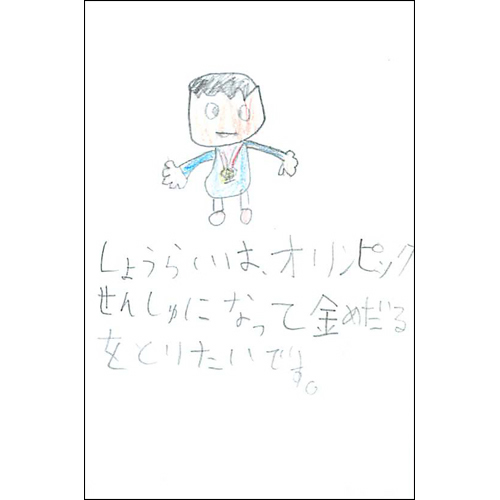 しょうらいは、オリンピック
せんしゅになって金めだる
をとりたいです。